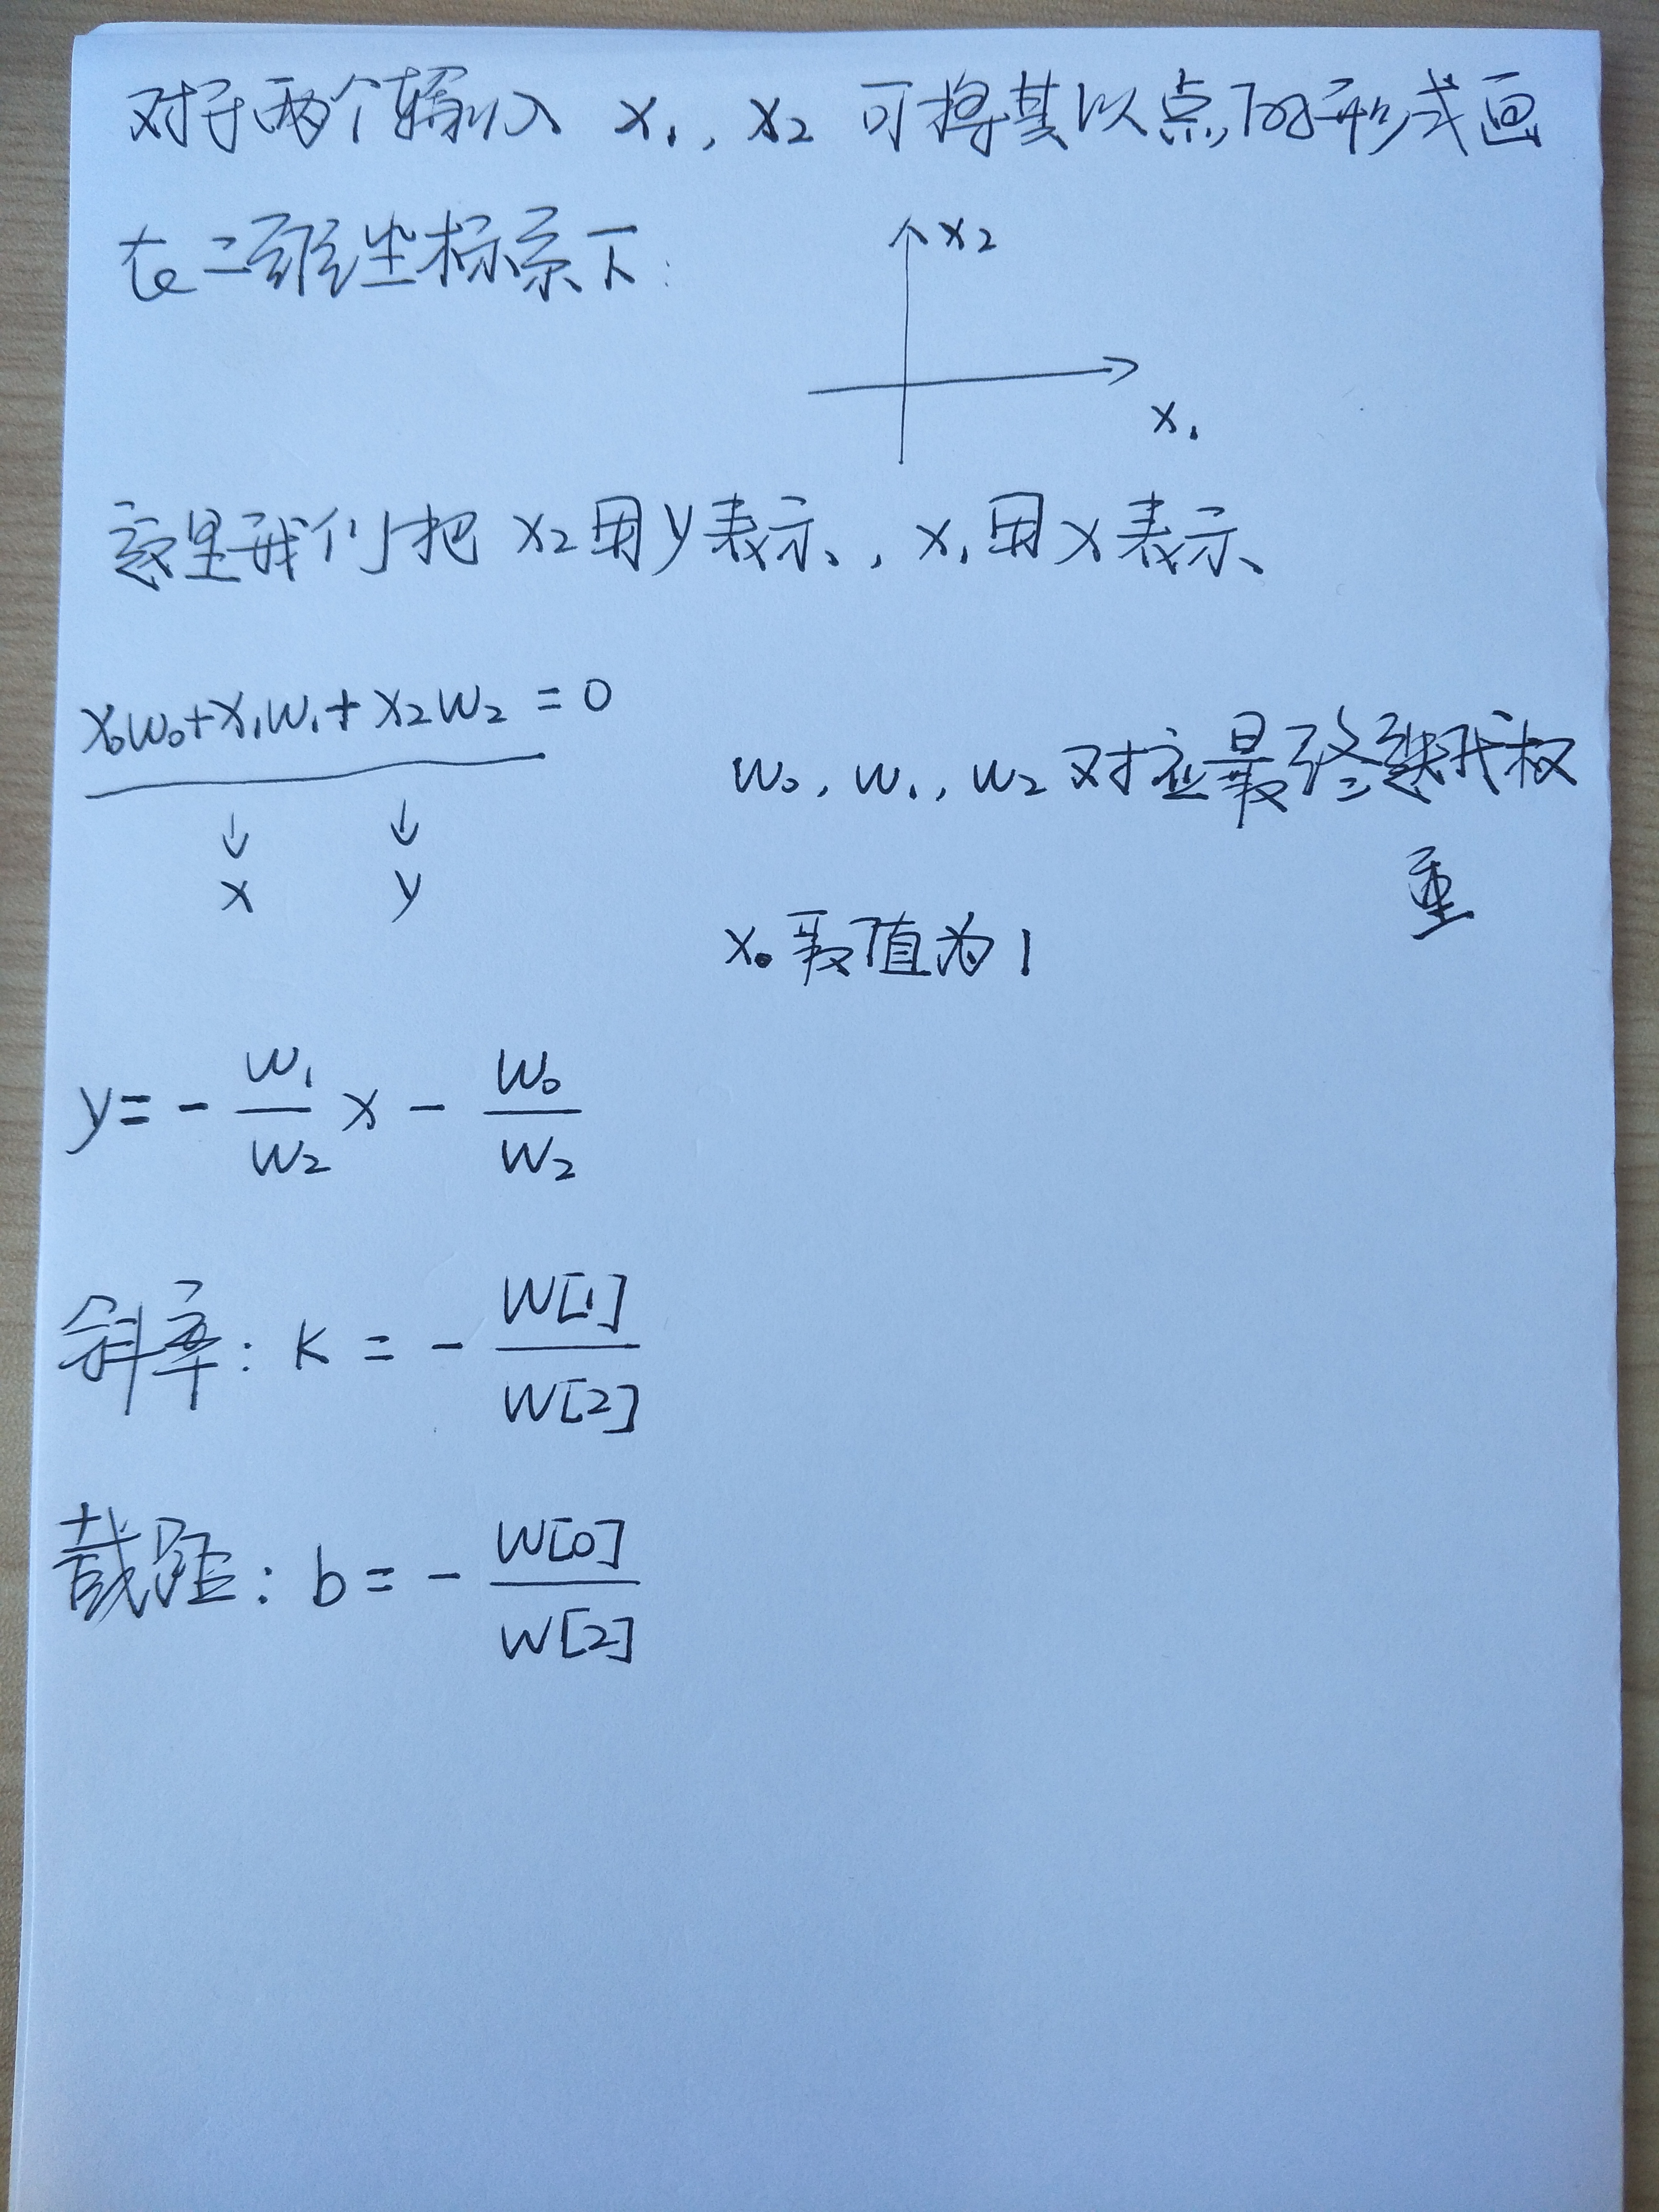 对于两个输入 x₁, x₂ 可将其以点的形式画
在二维坐标系下:
x₂
x₁
这里我们把 x₂用y表示, x₁用x表示
x₀w₀+x₁w₁+x₂w₂=0
↓ ↓
x y
w₀, w₁, w₂ 对应最终迭代权
重
x₀取值为1
y= - w₁/w₂ x - w₀/w₂
斜率: k = - w[1]/w[2]
截距: b = - w[0]/w[2]